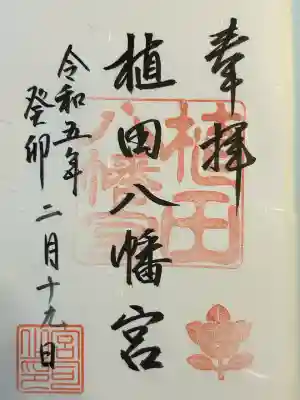 奉拝
植田八幡宮
令和五年
癸卯 二月十九日
植田
八幡宮